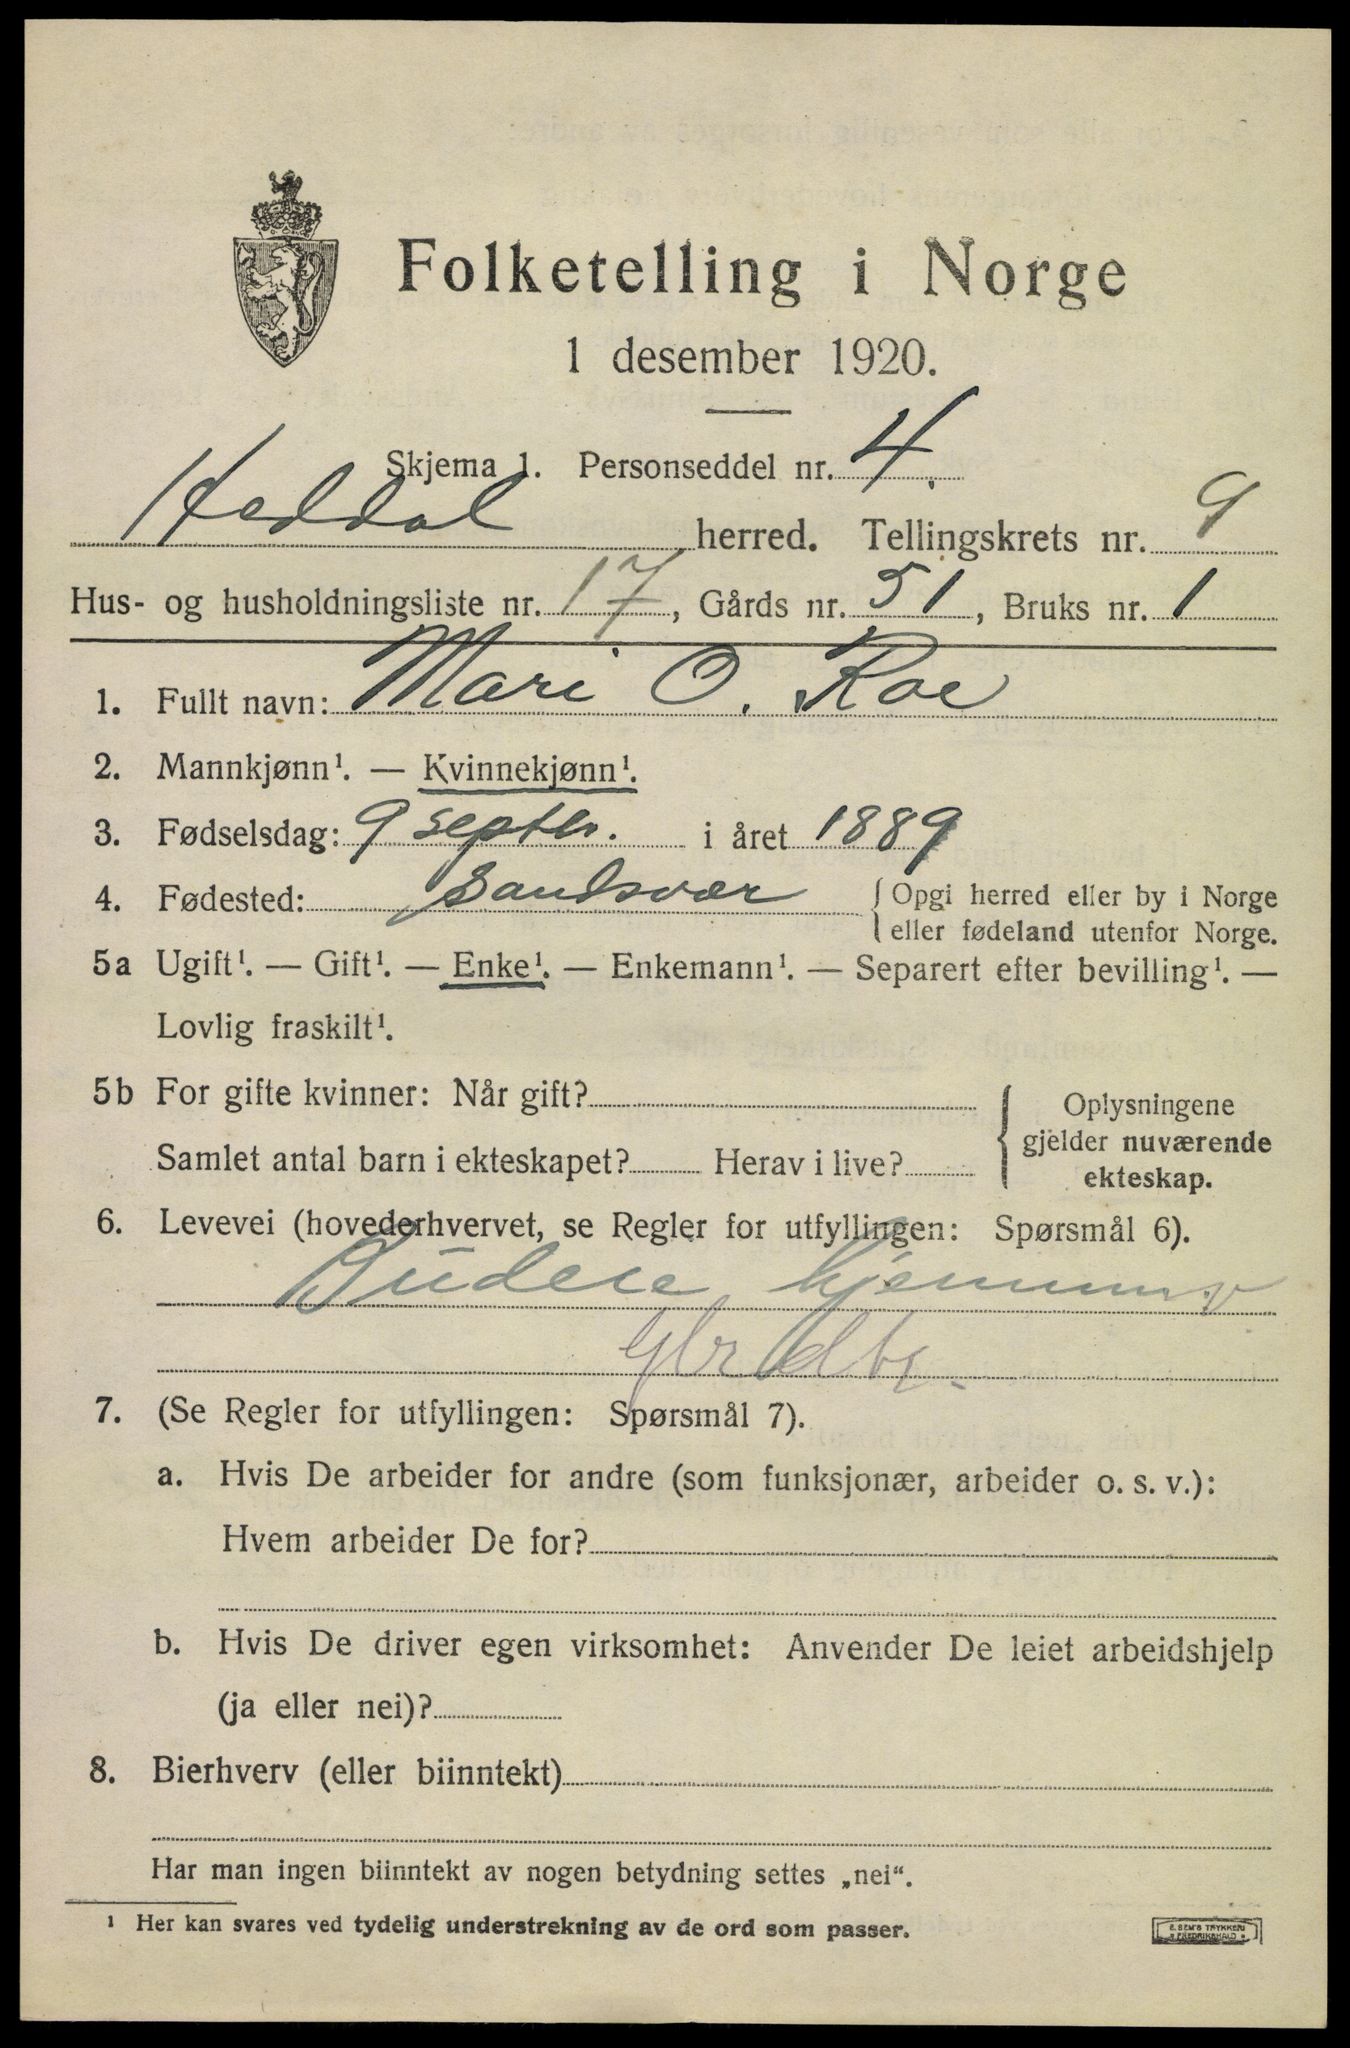 Folketelling i Norge
1 desember 1920.
Skjema 1. Personseddel nr. 4.
Heddal herred. Tellingskrets nr. 9
Hus- og husholdningsliste nr. 17, Gårds nr. 51, Bruks nr. 1
1. Fullt navn: Mari O. Roe
2. Mannkjønn¹. — Kvinnekjønn¹.
3. Fødselsdag: 9 septbr. i året 1889
4. Fødested: Sandsvær { Opgi herred eller by i Norge
eller fødeland utenfor Norge.
5a Ugift¹. — Gift¹. — Enke¹. — Enkemann¹. — Separert efter bevilling¹. —
Lovlig fraskilt¹.
5b For gifte kvinner: Når gift?
Samlet antal barn i ekteskapet? Herav i live?
{ Oplysningene
gjelder nuværende
ekteskap.
6. Levevei (hovederhvervet, se Regler for utfyllingen: Spørsmål 6).
Budeie
7. (Se Regler for utfyllingen: Spørsmål 7).
a. Hvis De arbeider for andre (som funksjonær, arbeider o. s. v.):
Hvem arbeider De for?
b. Hvis De driver egen virksomhet: Anvender De leiet arbeidshjelp
(ja eller nei)?
8. Bierhverv (eller biinntekt)
Har man ingen biinntekt av nogen betydning settes „nei“.
¹ Her kan svares ved tydelig understrekning av de ord som passer.
E. SEM'S TRYKKERI
FREDRIKSHALD